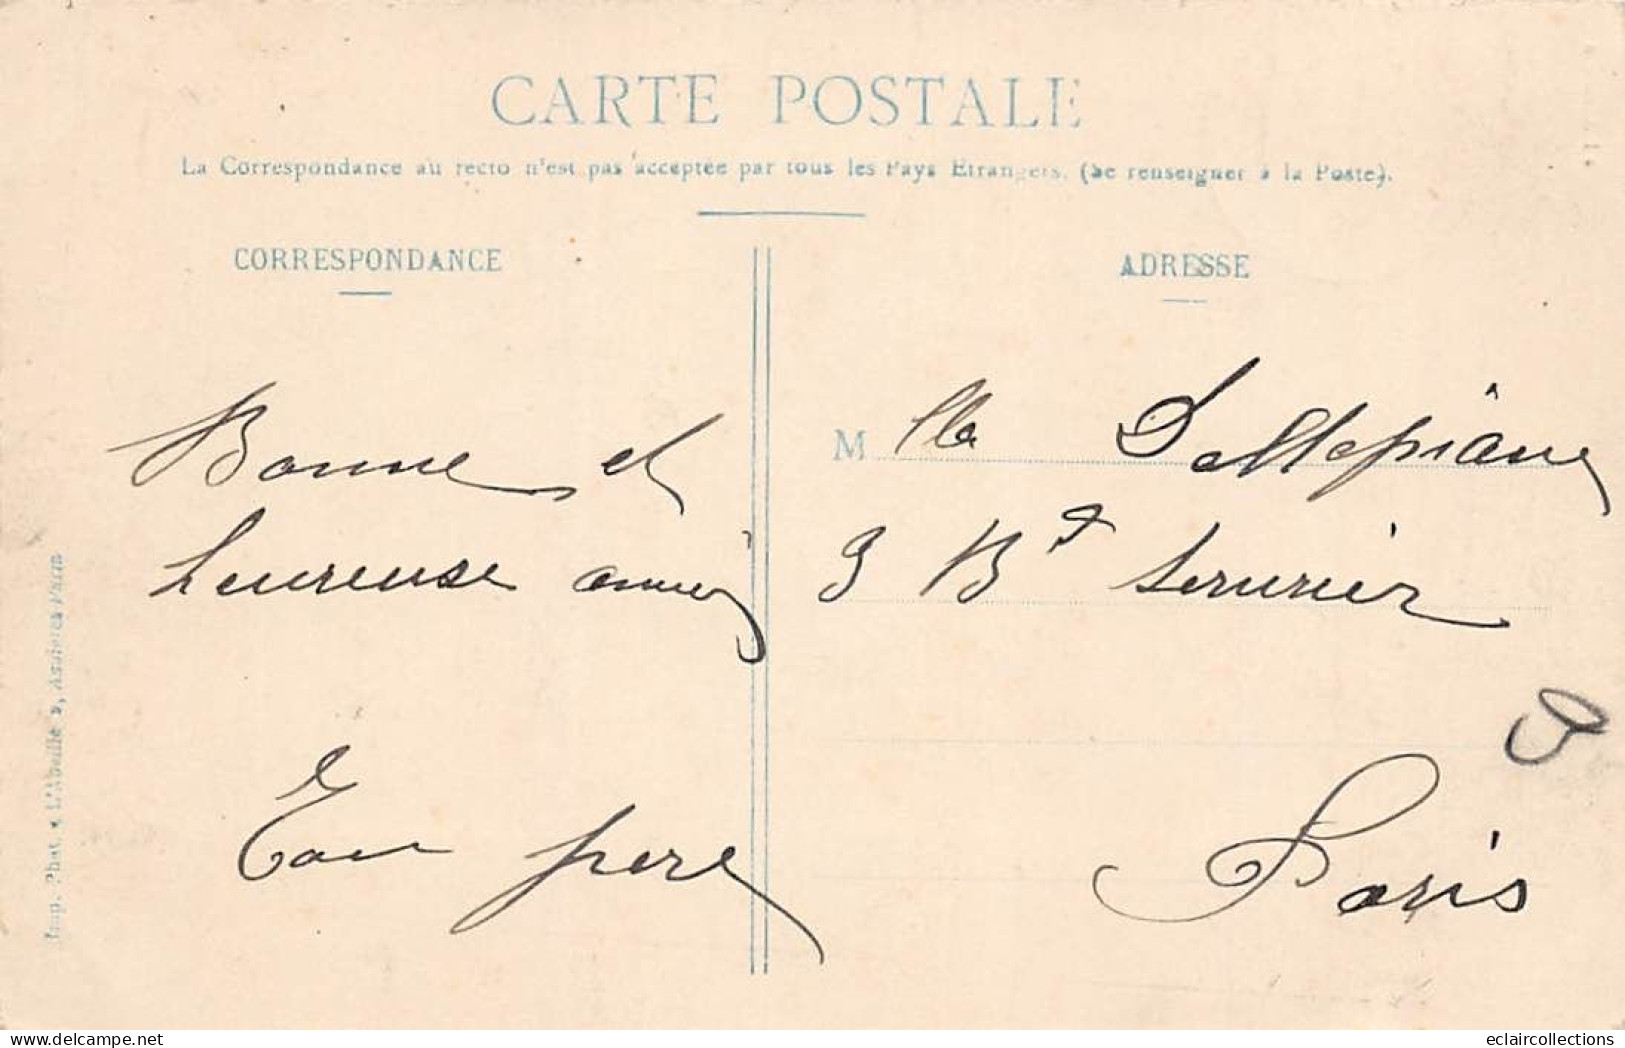 CARTE POSTALE
La Correspondance au recto n'est pas acceptée par tous les Pays Etrangers, (Se renseigner à la Poste).
CORRESPONDANCE
Bonne et
heureuse année
Ton père
ADRESSE
M lle Dellepiâne
9 Bd Serurier
Paris
Imp. Phot. « L'Abeille », Asnières-Paris
eclaircollections